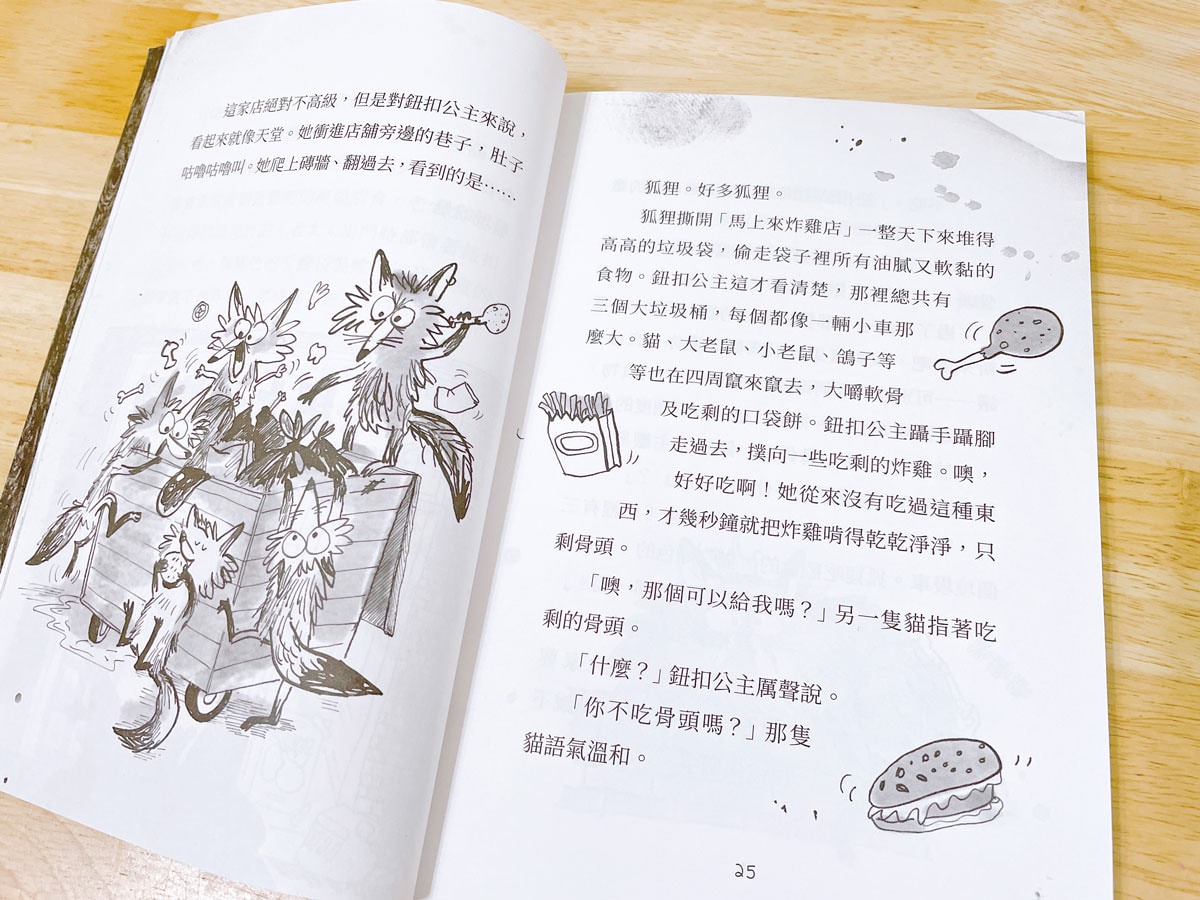 這家店絕對不高級，但是對鈕扣公主來說，
看起來就像天堂。她衝進店舖旁邊的巷子，肚子
咕嚕咕嚕叫。她爬上磚牆、翻過去，看到的是……
狐狸。好多狐狸。
狐狸撕開「馬上來炸雞店」一整天下來堆得
高高的垃圾袋，偷走袋子裡所有油膩又軟黏的
食物。鈕扣公主這才看清楚，那裡總共有
三個大垃圾桶，每個都像一輛小車那
麼大。貓、大老鼠、小老鼠、鴿子等
等也在四周竄來竄去，大嚼軟骨
及吃剩的口袋餅。鈕扣公主躡手躡腳
走過去，撲向一些吃剩的炸雞。噢，
好好吃啊！她從來沒有吃過這種東
西，才幾秒鐘就把炸雞啃得乾乾淨淨，只
剩骨頭。
「噢，那個可以給我嗎？」另一隻貓指著吃
剩的骨頭。
「什麼？」鈕扣公主厲聲說。
「你不吃骨頭嗎？」那隻
貓語氣溫和。
25